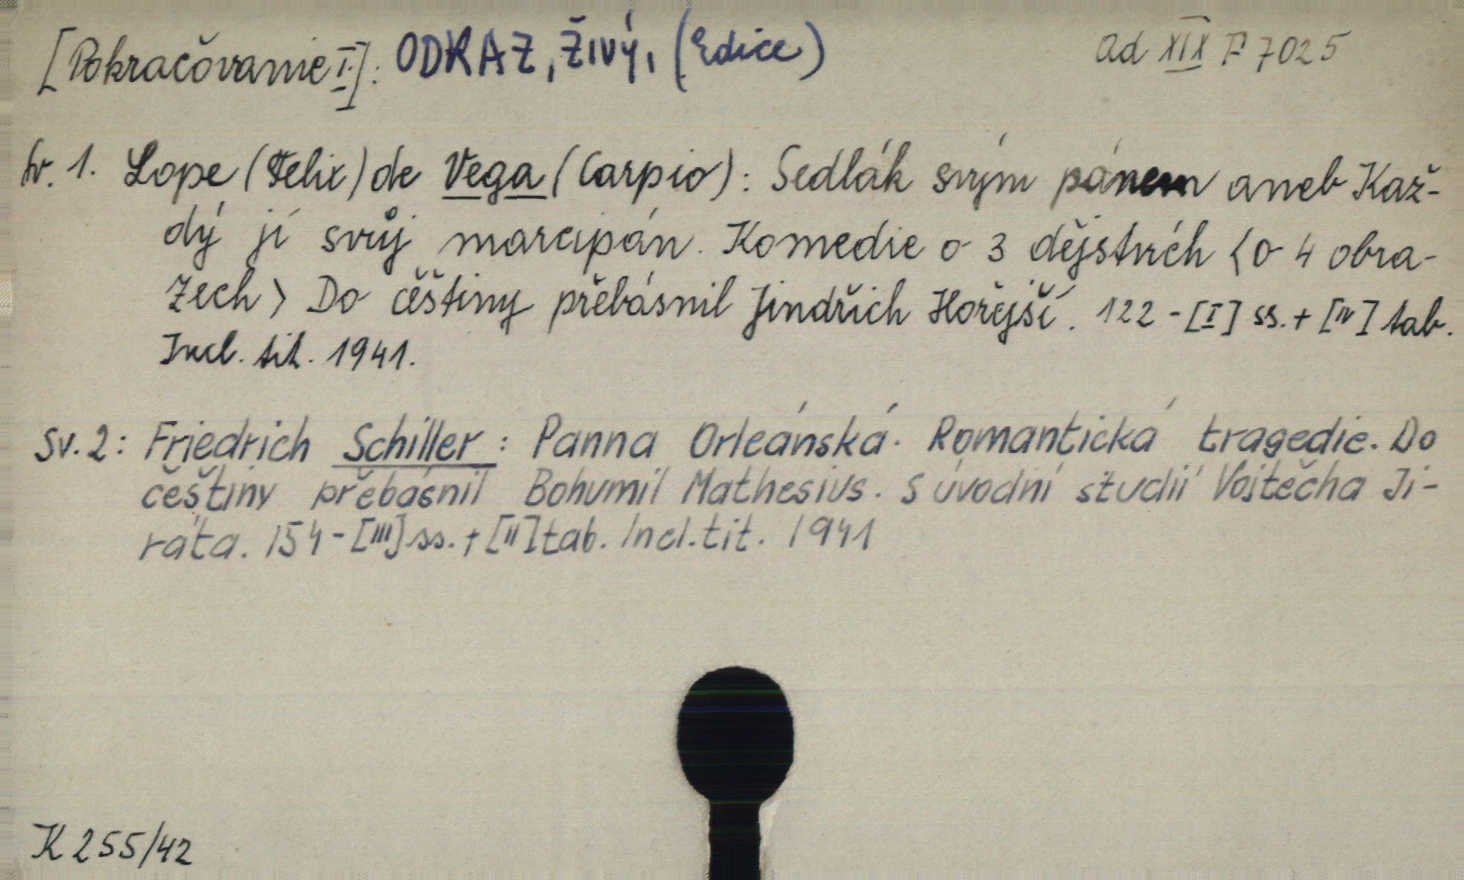 [Pokračóvanie I]: ODRAZ, ŽIVÝ, (Edice)
ad XIX F 7025
Sv. 1. Lope (Felix) de Vega (Carpio): Sedlák svým pánem aneb Kaž-
dý jí svůj marcipán. Komedie o 3 dějstvích <o 4 obra-
zech> Do češtiny přebásnil Jindřich Hořejší. 122-[I] ss.+[IV] tab.
Incl. tit. 1941.
Sv. 2: Friedrich Schiller: Panna Orleánská. Romantická tragedie. Do
češtiny přebásnil Bohumil Mathesius. S úvodní studií Vojtěcha Ji-
ráta. 154-[III] ss.+[II] tab. Incl. tit. 1941
K 255/42